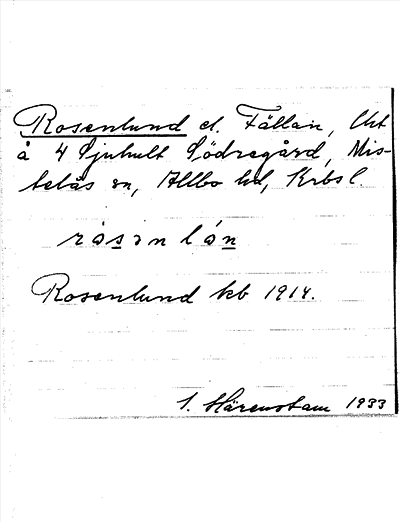 Rosenlund el. Fällan, Uht
å 4 Sjuhult Södregård, Mis-
telås sn, Allbo hd, Krbs l.
rɷsənlón
Rosenlund kb 1914.
S. Härenstam 1933